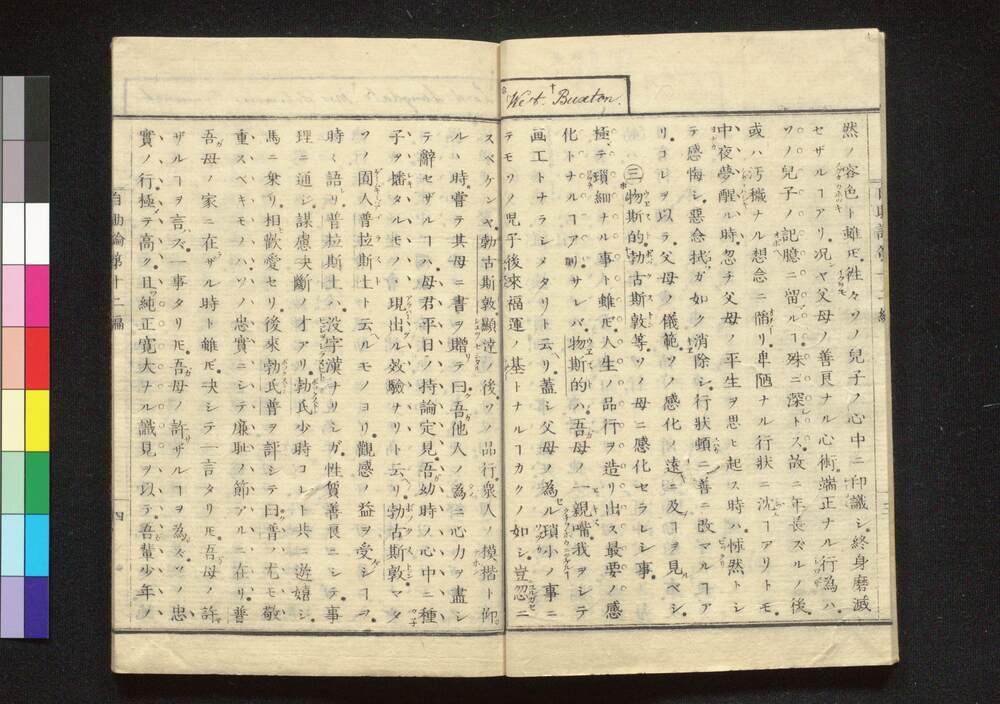 West. Buxton.
然ノ容色ト雖𪜈往々ソノ兒子ノ心中ニ印識シ終身磨滅
セザルヿアリ况ヤ父母ノ善良ナル心術端正ナル行為ハ
ソノ兒子ノ記臆ニ留ルヿ殊ニ深トス故ニ年長ズルノ後
或ハ汚穢ナル想念ニ陥リ卑陋ナル行狀ニ沈ムヿアリトモ
中夜夢醒ル時忽チ父母ノ平生ヲ思ヒ起ス時ハ悚然トシ
テ感悔シ惡念拭ガ如ク消除シ行狀頓ニ善ニ改マルヿア
リコレヲ以ラ父母ノ儀範ソノ感化ノ遠ニ及ブヿヲ見ベシ
三 物斯的勃古斯敦等ソノ母ニ感化セラレシ事
極テ瑣細ナル事ト雖𪜈人生ノ品行ヲ造リ出ス最要ノ感
化トナルヿアリサレバ物斯的ハ吾母ノ一親嘴我ヲシテ
画工トナラシメタリト云リ蓋シ父母ノ為ル瑣小ノ事ニ
テモソノ児子後來福運ノ基トナルヿカクノ如シ豈忽ニ
スベケンヤ勃古斯敦顯達ノ後ソノ品行衆人ノ模楷ト仰
ルヽ時嘗テ其母ニ書ヲ贈テ曰吾他人ノ為ニ心力ヲ盡シ
テ辭セザルヿハ母君平日ノ持論定見吾幼時ノ心中ニ種
子ヲ播タルモノヽ現出ル效驗ナリト云リ勃古斯敦マタ
ソノ囿人普拉斯士ト云ルモノヨリ觀感ノ益ヲ受シヿヲ
時々語リ普拉斯士ハ没字漢ナリシガ性質善良ニシテ事
理ニ通シ謀慮决斷ノ才アリ勃氏少時コレト共ニ遊嬉シ
馬ニ乗リ相歡愛セリ後來勃氏普ヲ評シテ曰普ハ尤モ敬
重スベキモノハソノ忠實ニシテ廉耻ノ節アルニ在リ普
吾母ノ家ニ在ザル時ト雖𪜈决シテ一言タリ𪜈吾母ノ許
ザルヿヲ言ズ一事タリ𪜈吾母ノ許ザルヿヲ為ズソノ忠
實ノ行極テ高ク且純正寛大ナル識見ヲ以テ吾輩少年ノ
自助論第十一編
四